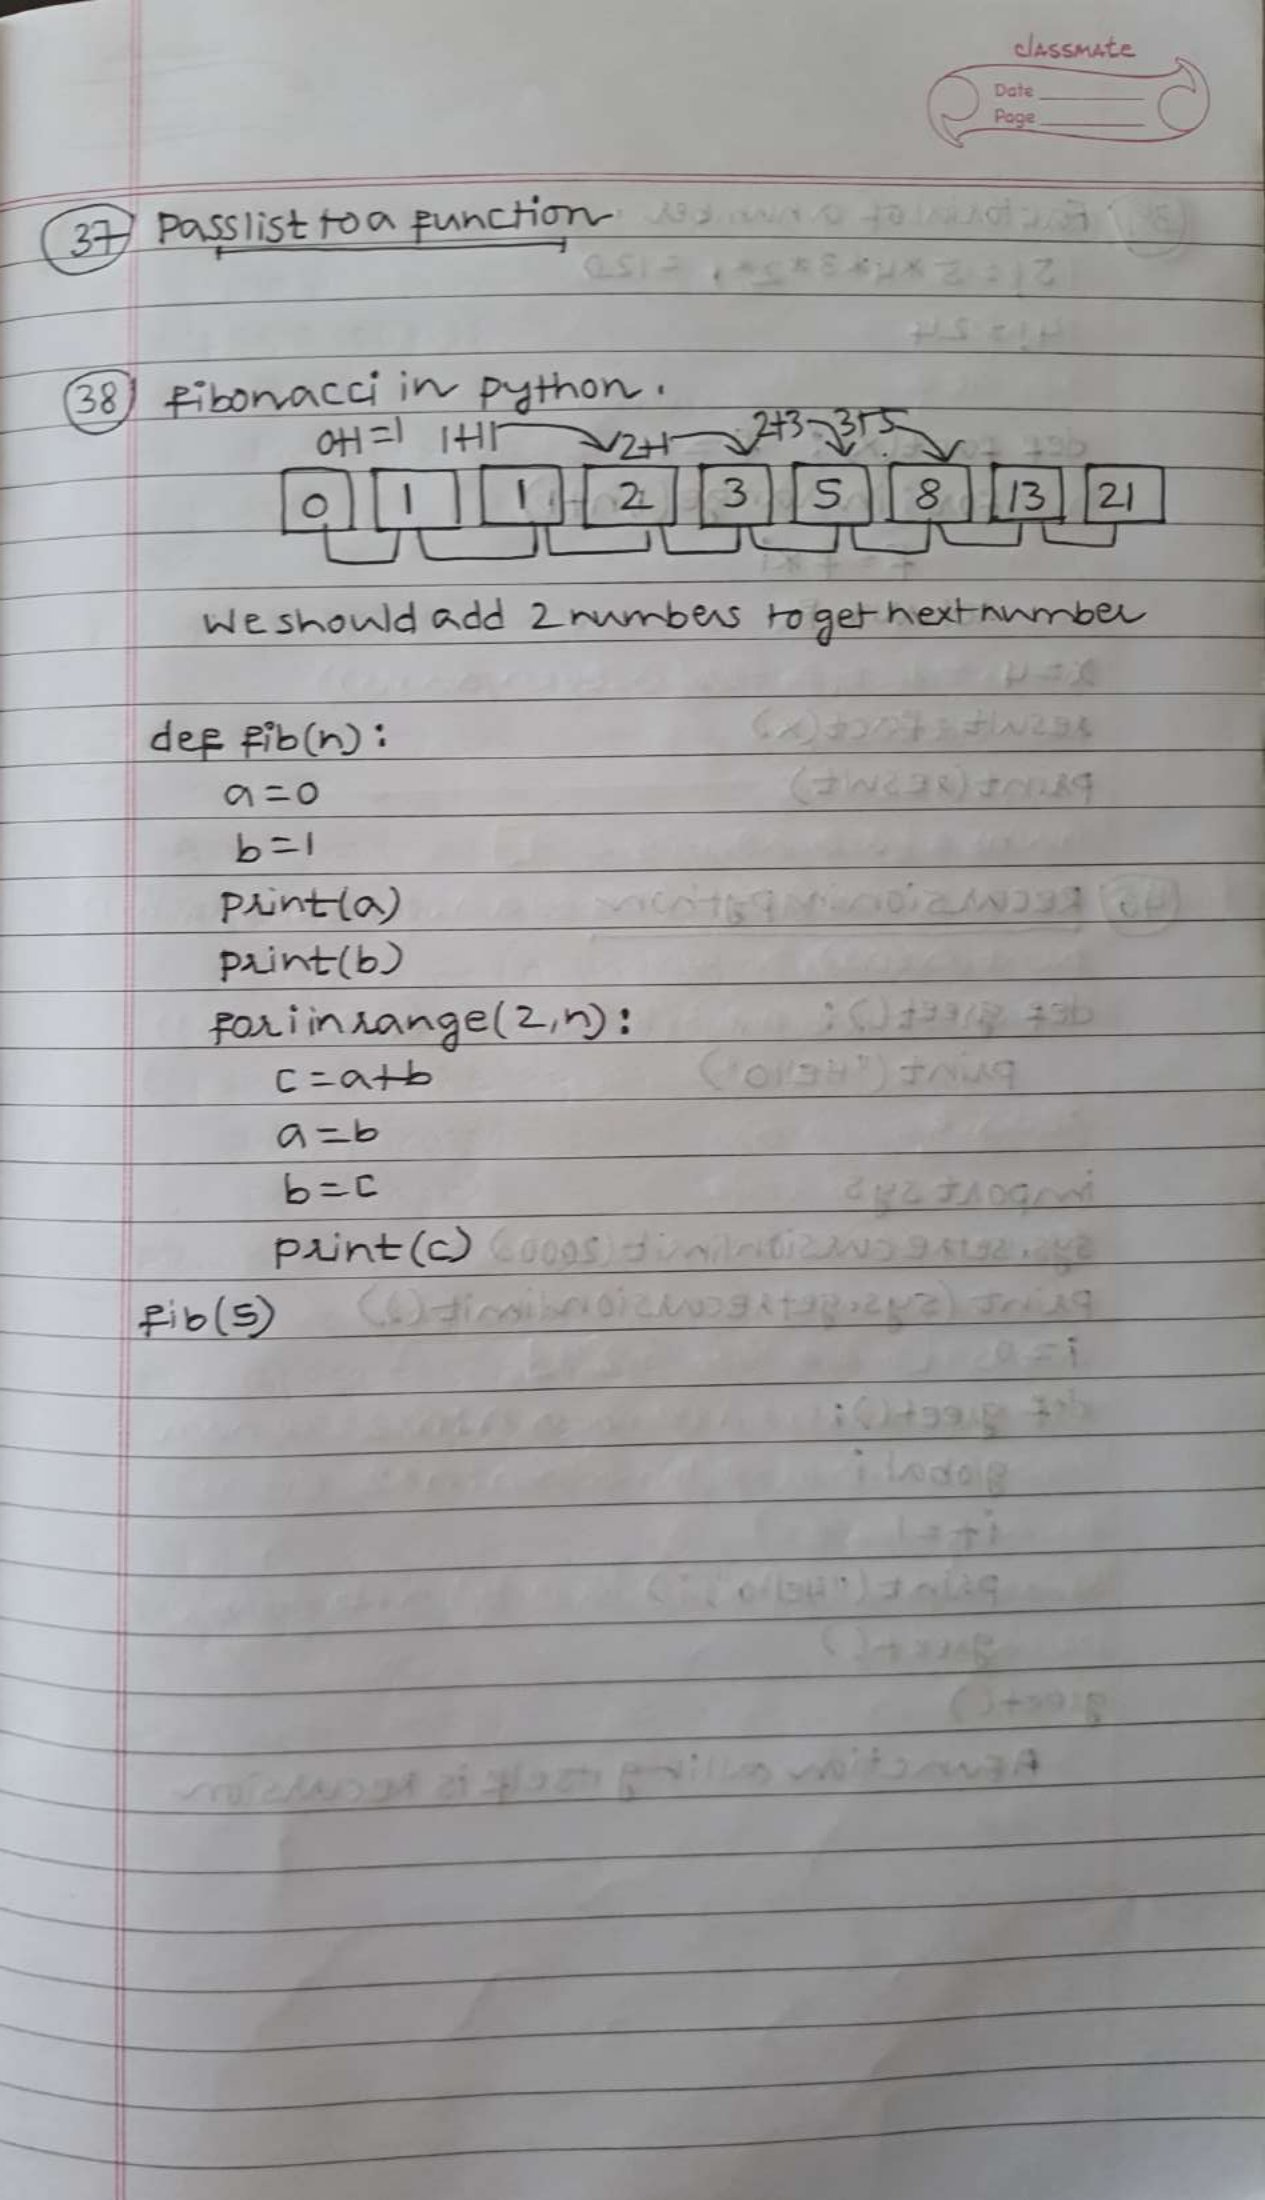 classmate
Date
Page
37 Pass list to a function
38 fibonacci in python.
0+1=1 1+1 2+1 2+3 3+5
0 1 1 2 3 5 8 13 21
We should add 2 numbers to get next number
def fib(n):
a=0
b=1
print(a)
print(b)
for i in range(2,n):
c=a+b
a=b
b=c
print(c)
fib(5)